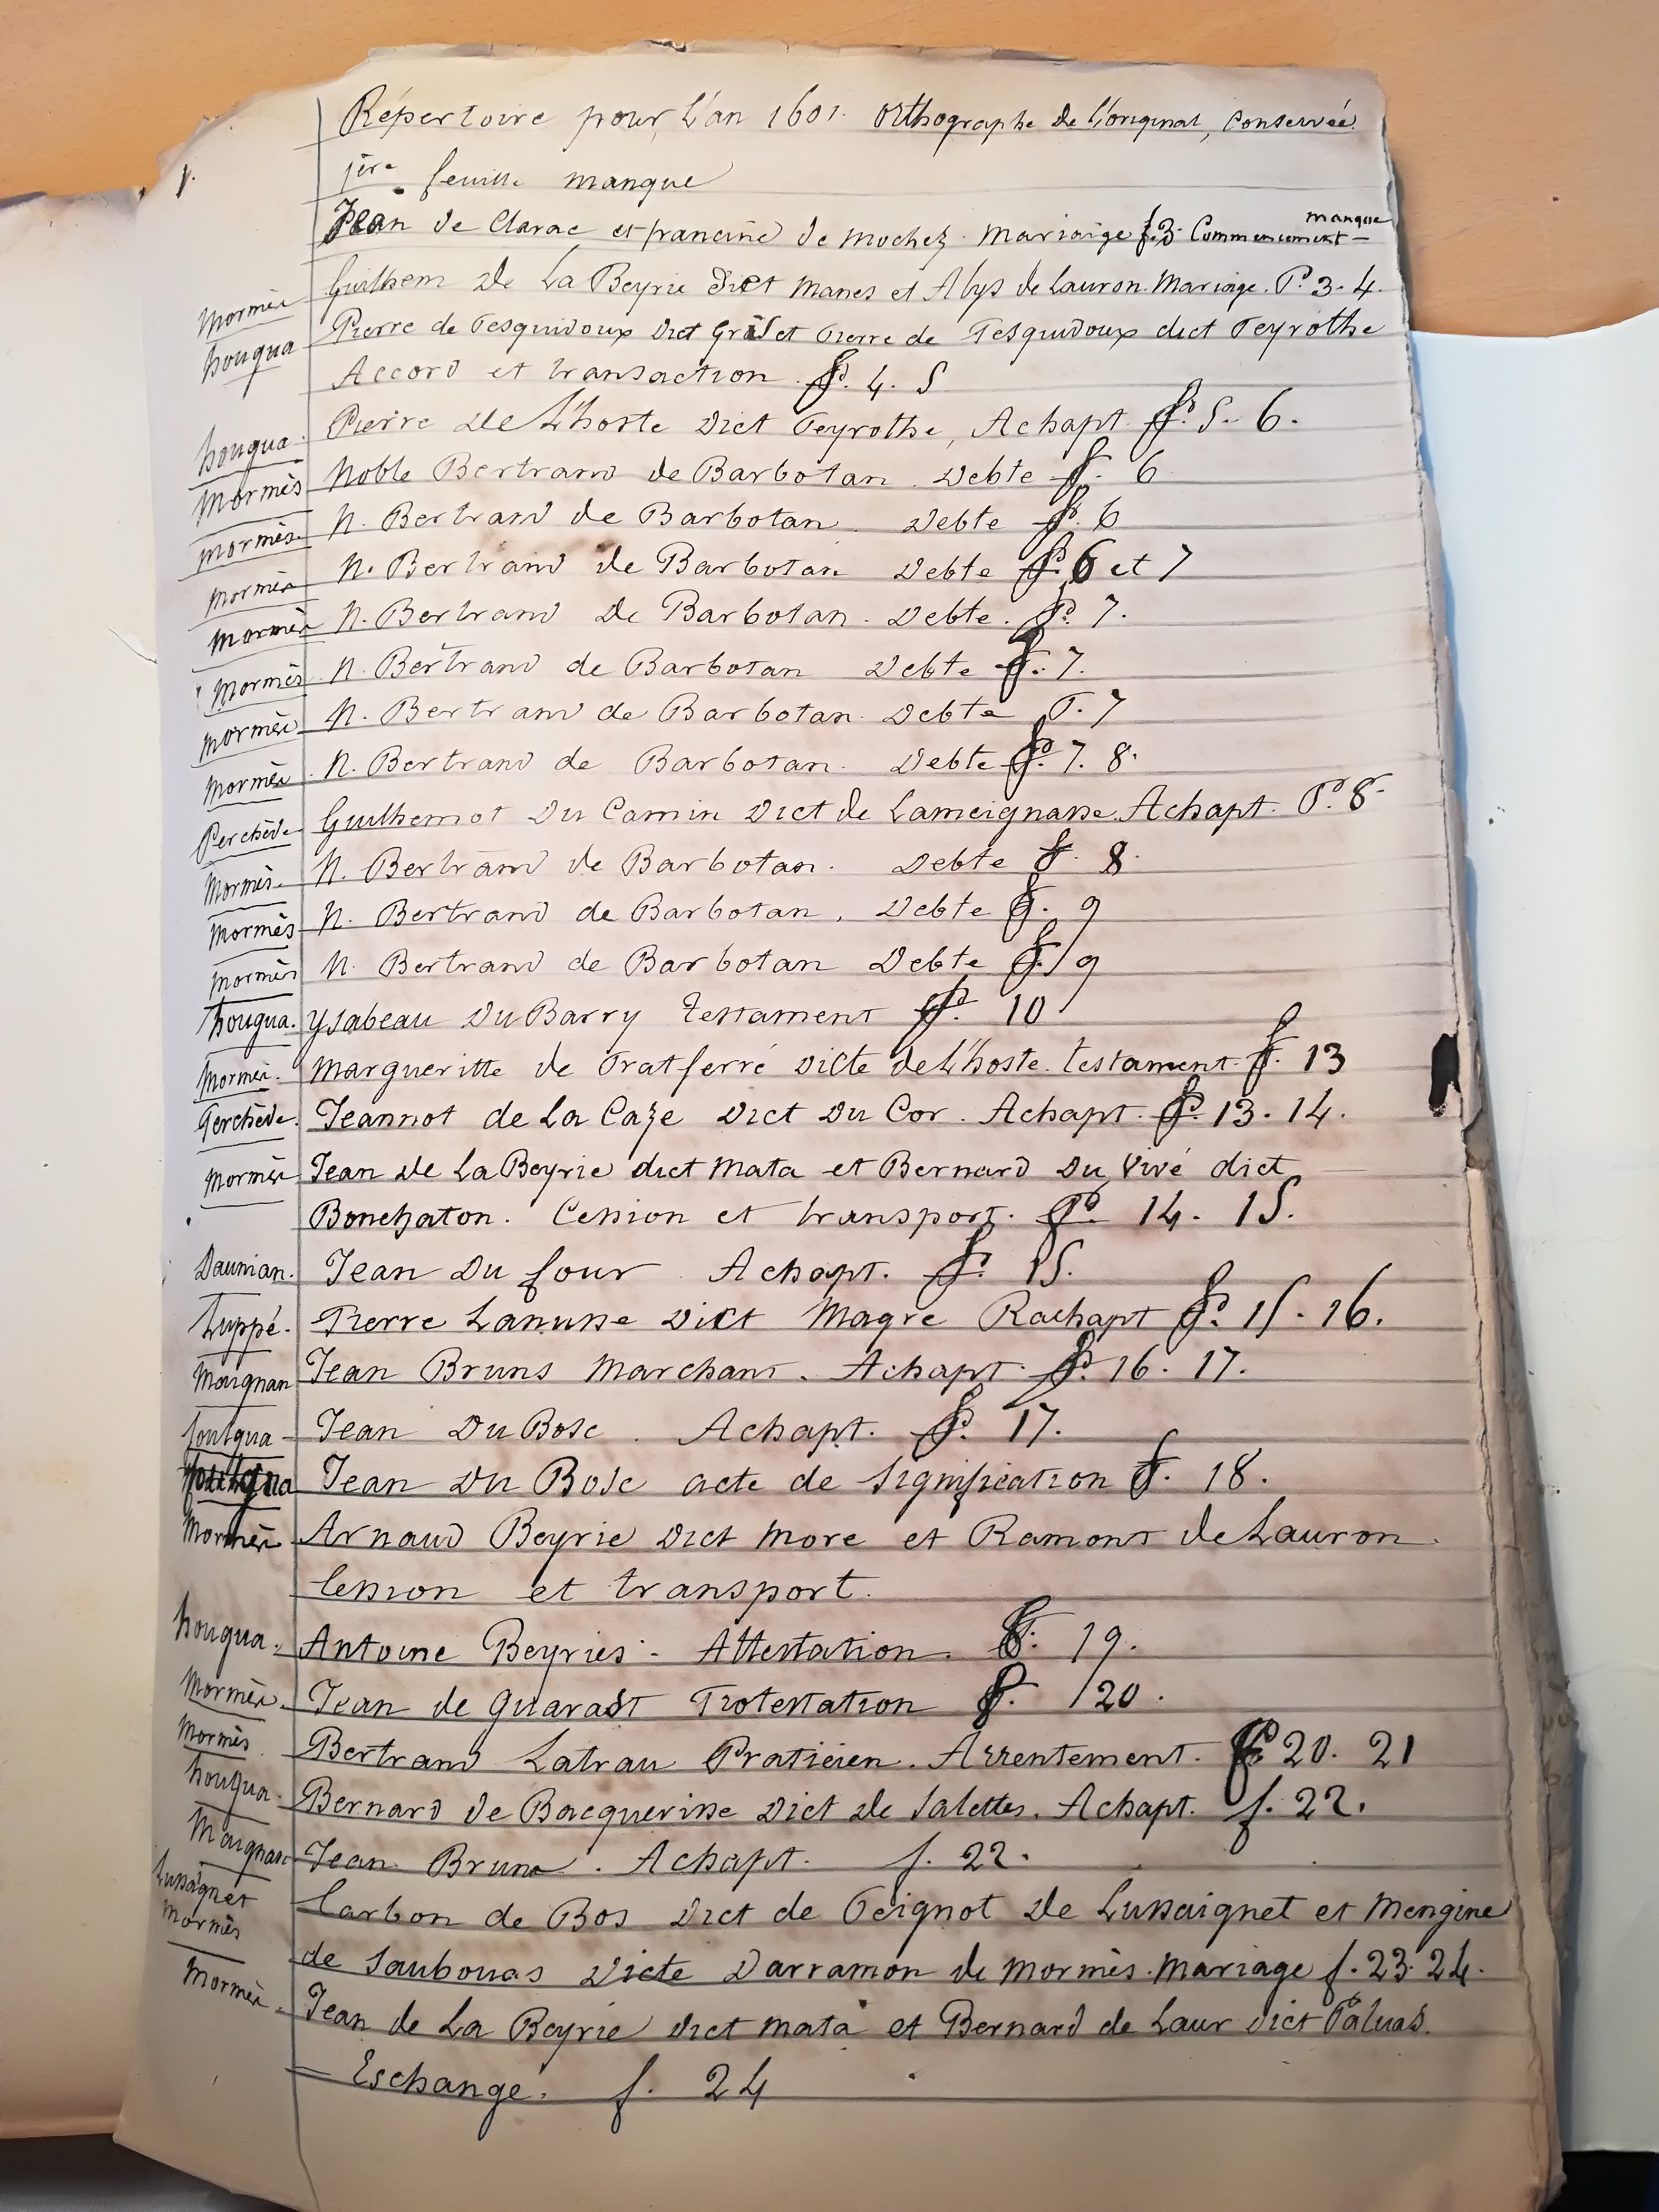 Répertoire pour L'an 1601. Orthographe de l'original, conservée.
1ère feuille manque
Jean de Clarac et francine de Mochez. Mariaige f. 3. Commencement manque
Mormès Guilhem de La Beyrie dict Manes et Alys de Lauron. Mariage. P. 3. 4.
houqua Pierre de Pesquidoux dict Griset Pierre de Pesquidoux dict Peyrothe
Accord et transaction f. 4. 5
houqua. Pierre de L'hoste dict Peyrothe, Achapt. f. 5. 6.
Mormès Noble Bertrand de Barbotan. Debte f. 6
Mormès N. Bertrand de Barbotan. Debte f. 6
Mormès N. Bertrand de Barbotan Debte f. 6 et 7
Mormès N. Bertrand de Barbotan. Debte. f. 7.
Mormès N. Bertrand de Barbotan Debte f. 7.
Mormès N. Bertrand de Barbotan. Debte P. 7
Mormès N. Bertrand de Barbotan. Debte f. 7. 8.
Perchède Guilhemot Du Camin Dict de Lameignasse. Achapt. P. 8.
Mormès. N. Bertrand de Barbotan. Debte f. 8.
Mormès N. Bertrand de Barbotan. Debte f. 9
Mormès N. Bertrand de Barbotan Debte f. 9
houqua. Ysabeau Du Barry testament f. 10
Mormès. Margueritte de Pratferré dicte de L'hoste. testament. f. 13
Perchède. Jeannot de La Caze Dict Du Cor. Achapt. f. 13. 14.
Mormès Jean de La Beyrie dict Mata et Bernard Du Vivé dict
Bonehaton. Cession et transport. f. 14. 15.
Daunian. Jean Du four. Achapt. f. 15.
Luppé. Pierre Lanusse Dict Magre Rachapt f. 15. 16.
Maignan Jean Bruns Marchant. Achapt. f. 16. 17.
houlqua Jean Du Bosc. Achapt. f. 17.
Jean Du Bosc acte de signification f. 18.
Mormès Arnaud Beyrie Dict More et Ramont de Lauron.
Cession et transport.
houqua. Antoine Beyries. Attestation. f. 19.
Mormès. Jean de Guarast Protestation f. 20.
Mormès. Bertrand Latrau Praticien. Arrentement. f. 20. 21
houqua. Bernard de Bacquerisse Dict de Salettes. Achapt. f. 22.
Maignan Jean Bruns. Achapt. f. 22.
Lussagnet Mormès Carbon de Bos Dict de Peignot de Lussaignet et Mengine
de Saubouas Dicte Darramon de Mormès. Mariage f. 23. 24.
Mormès. Jean de La Beyrie Dict Mata et Bernard de Laur Dict Paluas.
Eschange. f. 24